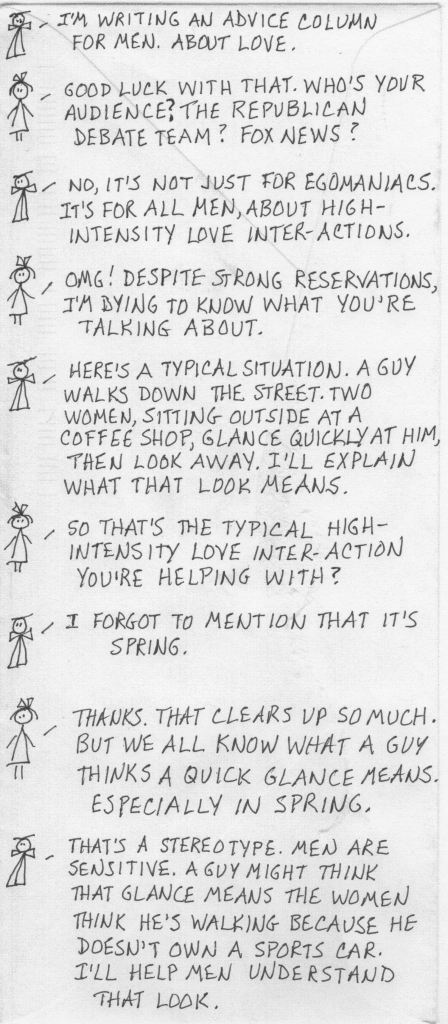 I'M WRITING AN ADVICE COLUMN
FOR MEN. ABOUT LOVE.
GOOD LUCK WITH THAT. WHO'S YOUR
AUDIENCE? THE REPUBLICAN
DEBATE TEAM? FOX NEWS?
NO, IT'S NOT JUST FOR EGOMANIACS.
IT'S FOR ALL MEN, ABOUT HIGH-
INTENSITY LOVE INTER-ACTIONS.
OMG! DESPITE STRONG RESERVATIONS,
I'M DYING TO KNOW WHAT YOU'RE
TALKING ABOUT.
HERE'S A TYPICAL SITUATION. A GUY
WALKS DOWN THE STREET. TWO
WOMEN, SITTING OUTSIDE AT A
COFFEE SHOP, GLANCE QUICKLY AT HIM,
THEN LOOK AWAY. I'LL EXPLAIN
WHAT THAT LOOK MEANS.
SO THAT'S THE TYPICAL HIGH-
INTENSITY LOVE INTER-ACTION
YOU'RE HELPING WITH?
I FORGOT TO MENTION THAT IT'S
SPRING.
THANKS. THAT CLEARS UP SO MUCH.
BUT WE ALL KNOW WHAT A GUY
THINKS A QUICK GLANCE MEANS.
ESPECIALLY IN SPRING.
THAT'S A STEREOTYPE. MEN ARE
SENSITIVE. A GUY MIGHT THINK
THAT GLANCE MEANS THE WOMEN
THINK HE'S WALKING BECAUSE HE
DOESN'T OWN A SPORTS CAR.
I'LL HELP MEN UNDERSTAND
THAT LOOK.